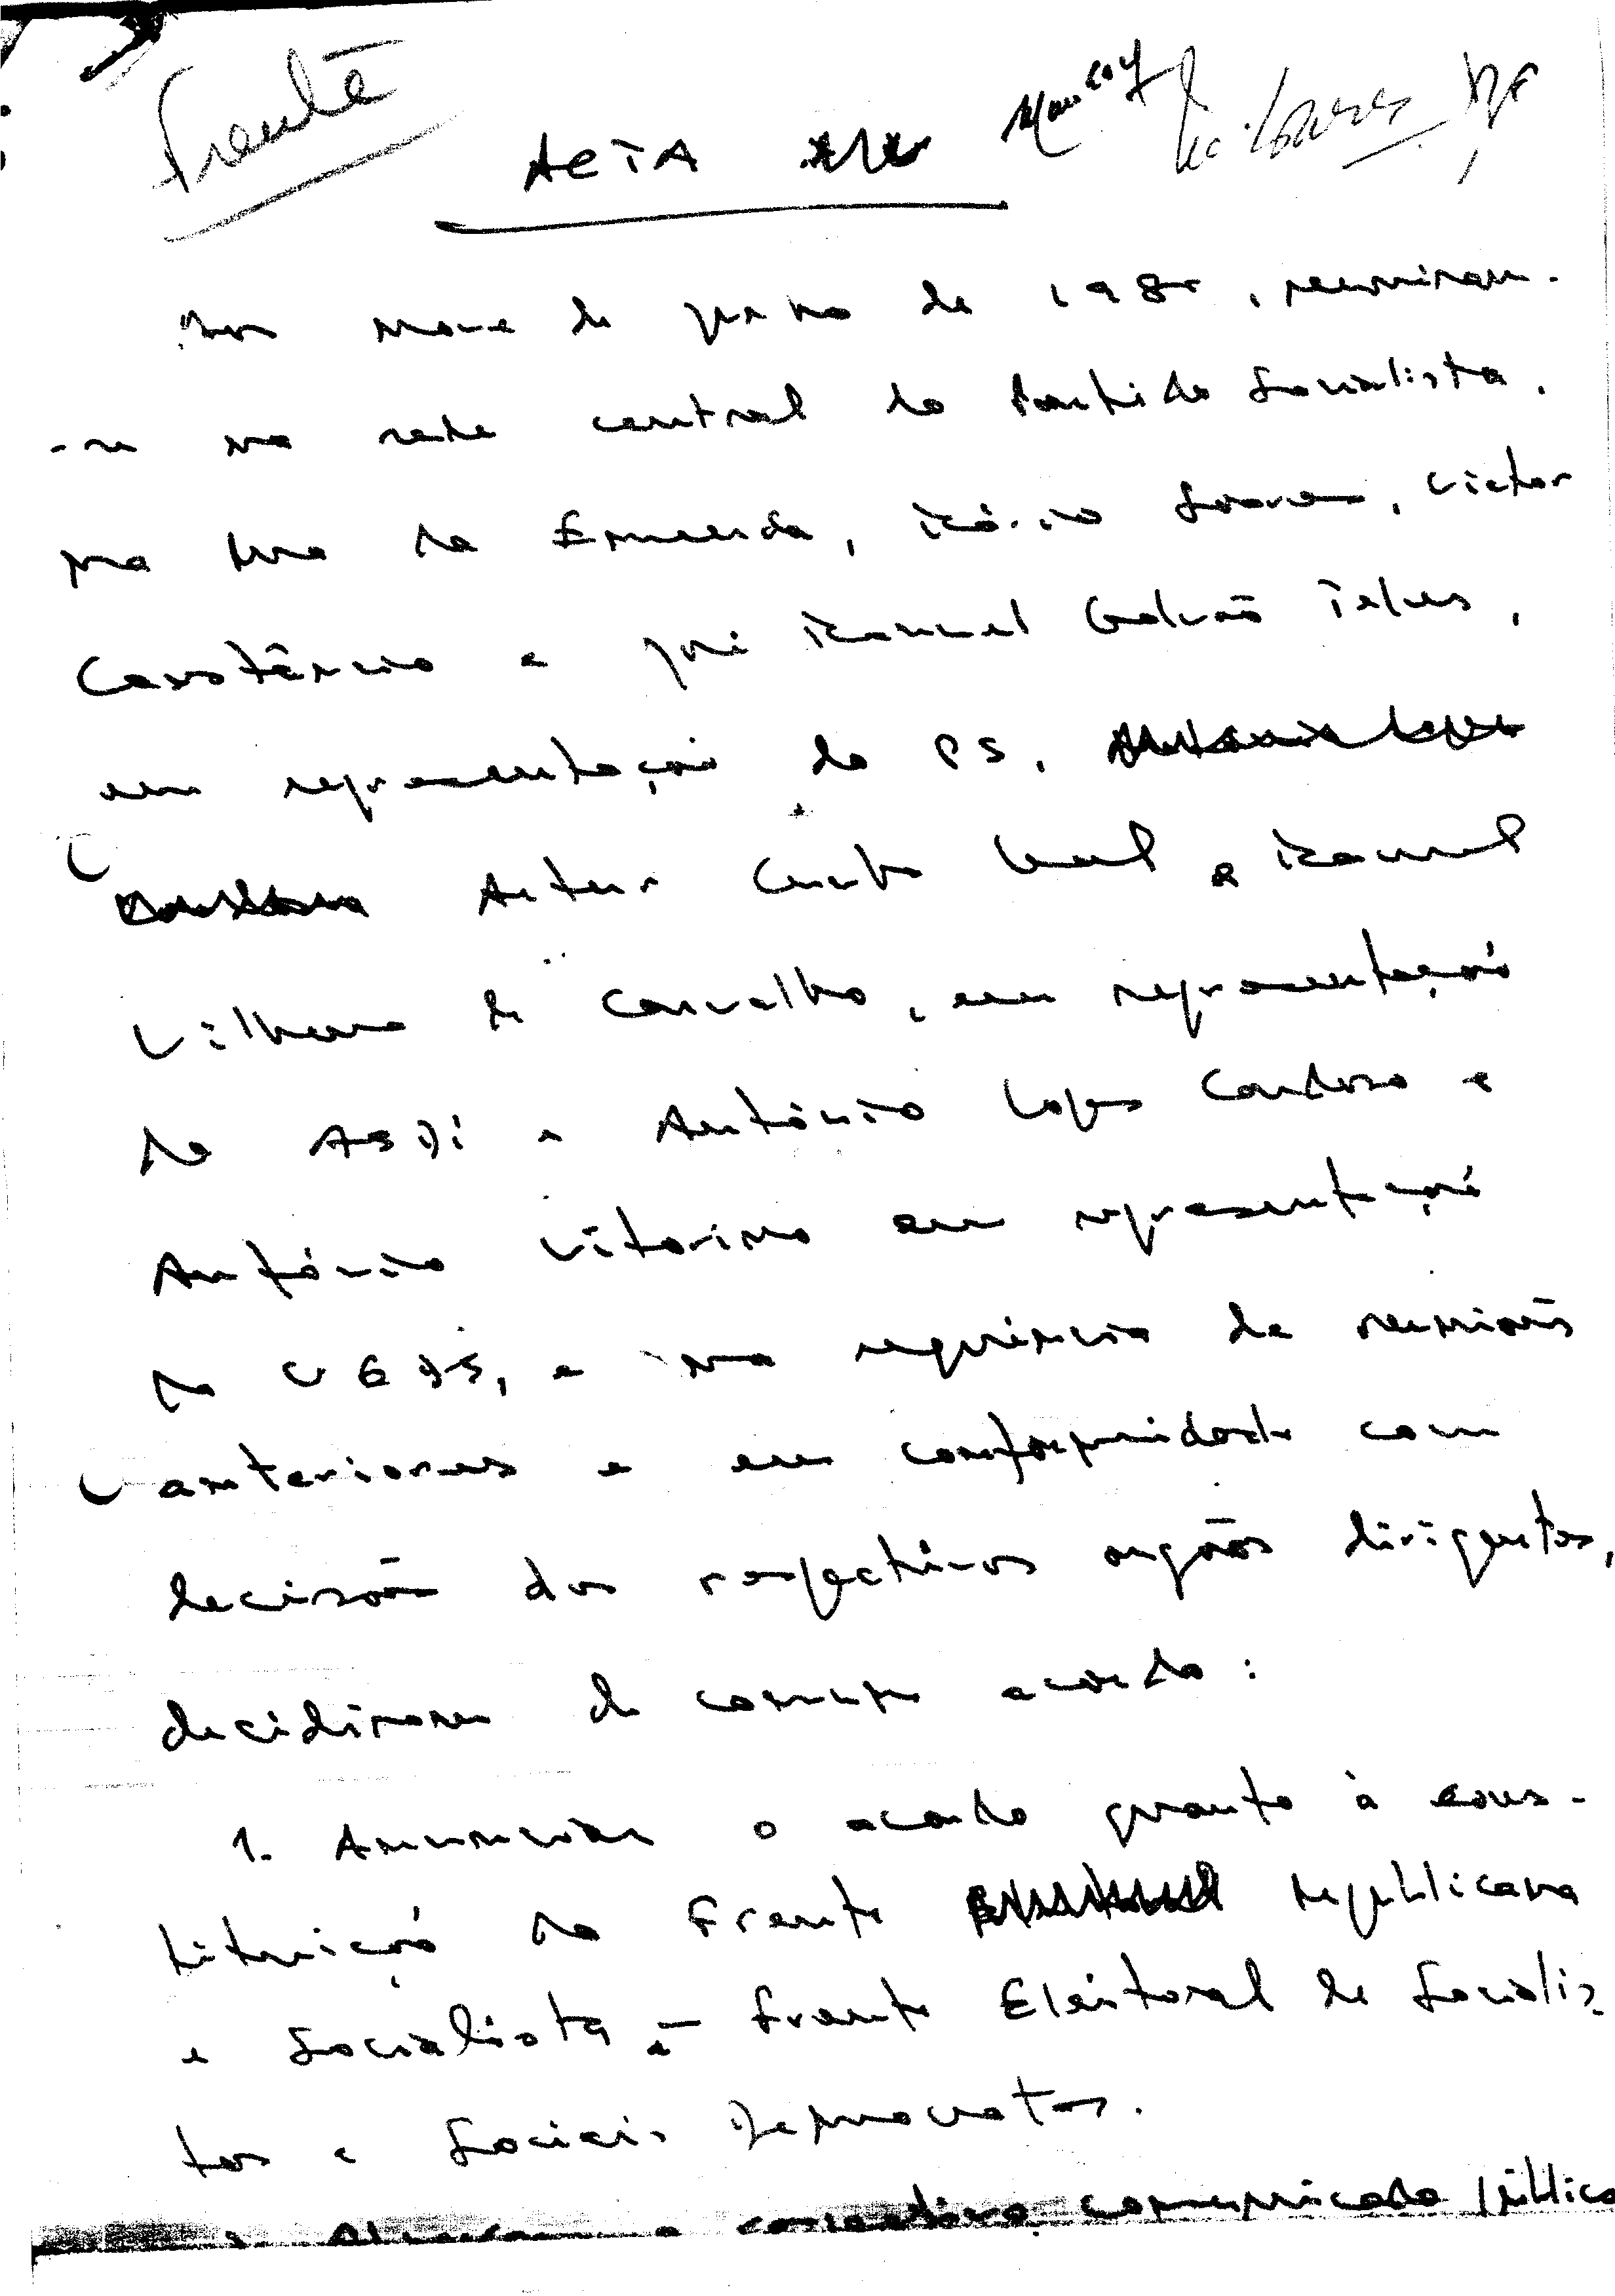 Frente
ACTA
Aos nove de junho de 1980, reuniram-
-se na sede central do Partido Socialista,
na Rua da Emenda, Mário Soares, Victor
Constâncio e José Manuel Galvão Teles,
em representação do PS,
Artur Cunha Leal e Manuel
Vilhena de Carvalho, em representação
da ASDI e António Lopes Cardoso e
António Vitorino em representação
da UEDS, e na sequência de reuniões
anteriores e em conformidade com
decisão dos respectivos orgãos dirigentes,
decidiram de comum acordo:
1. Anunciar o acordo quanto à cons-
tituição da Frente republicana
e Socialista - Frente Eleitoral de Socialis-
tas e Sociais Democratas.
comunicado público